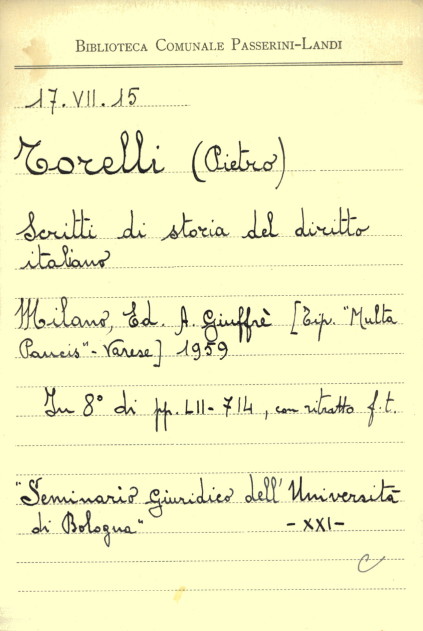 BIBLIOTECA COMUNALE PASSERINI-LANDI
17.VII.15
Torelli (Pietro)
Scritti di storia del diritto
italiano
Milano, Ed. A. Giuffrè [Tip. "Multa
Paucis"- Varese] 1959
In 8° di pp. LII-714, con ritratto f.t.
"Seminario Giuridico dell'Università
di Bologna" -XXI-
C